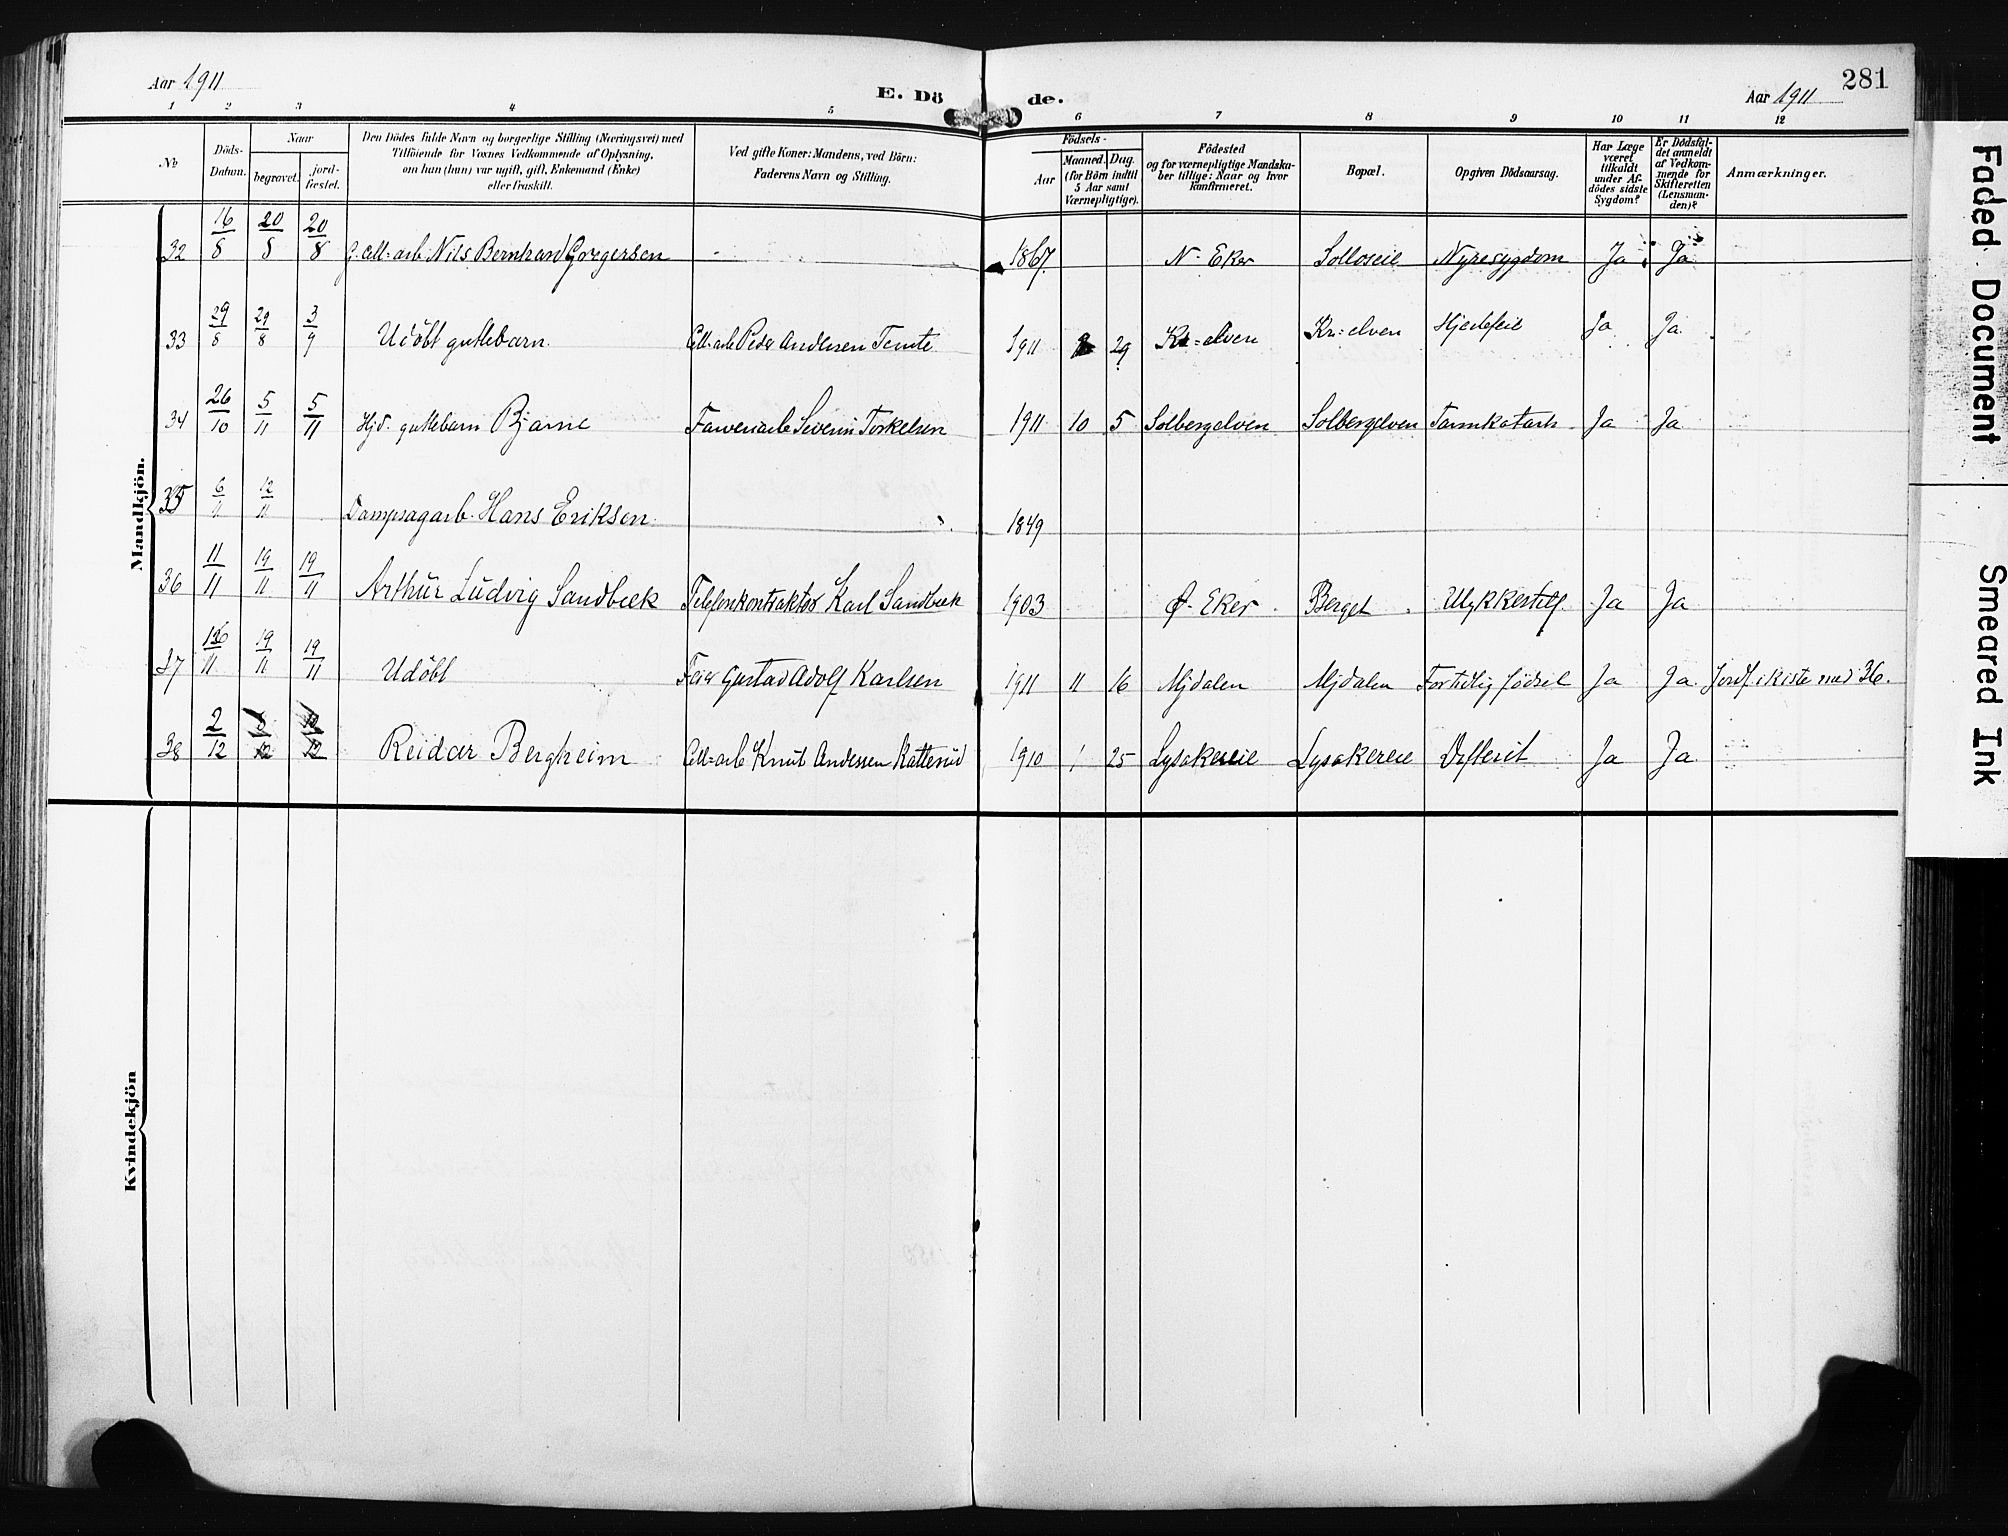 Aar 1911
E. Dö
de.
Aar 1911
281
1 2 3 4 5 6 7 8 9 10 11 12
No
Döds-
Datum.
Naar
begravet.
jord-
fæstet.
Den Dödes fulde Navn og borgerlige Stilling (Næringsvei) med
Tilföiende for Voxnes Vedkommende af Oplysning,
om han (hun) var ugift, gift, Enkemand (Enke)
eller fraskilt.
Ved gifte Koner: Mandens, ved Börn:
Faderens Navn og Stilling.
Födsels-
Aar
Maaned. Dag.
(for Börn indtil
5 Aar samt
Værnepligtige).
Födested
og for værnepligtige Mandska-
ber tillige: Naar og hvor
konfirmeret.
Bopæl.
Opgiven Dödsaarsag.
Har Læge
været
tilkaldt
under Af-
dödes sidste
Sygdom?
Er Dödsfal-
det anmeldt
af Vedkom-
mende for
Skifteretten
(Lensman-
den)?
Anmærkninger.
Mandkjön.
32 16/8 20/8 20/8 G. Cell=arb. Nils Berntzard Gregersen 1867 N- Eker Solloseie Nyresygdom Ja Ja
33 29/8 29/8 3/9 Udöbt guttebarn. Cell=arb Peder Andersen Temte 1911 29 Kr=elven Kr=elven Hjertefeil Ja Ja
34 26/10 5/11 5/11 Hjd. guttebarn Bjarne Farveriarb Severin Torkelsen 1911 10 5 Solbergelven Solbergelven Tarmkatarh Ja Ja
35 6/11 12/11 Dampsagarb. Hans Eriksen 1849
36 11/11 19/11 19/11 Arthur Ludvig Sandbæk Telefonkontraktør Karl Sandbæk 1903 Ø- Eker Berget Ulykkestilf. Ja Ja
37 16/11 19/11 19/11 Udöbt Feier Gustav Adolf Karlsen 1911 11 16 Mjdalen Mjdalen Fortidlig födsel Ja Ja Jordf. i kiste med 36.
38 2/12 Reidar Bergheim Cell=arb Knut Andersen Katterud 1910 1 25 Lysakereie Lysakereie Difterit Ja Ja
Kvindekjön
Faded Document
Smeared Ink